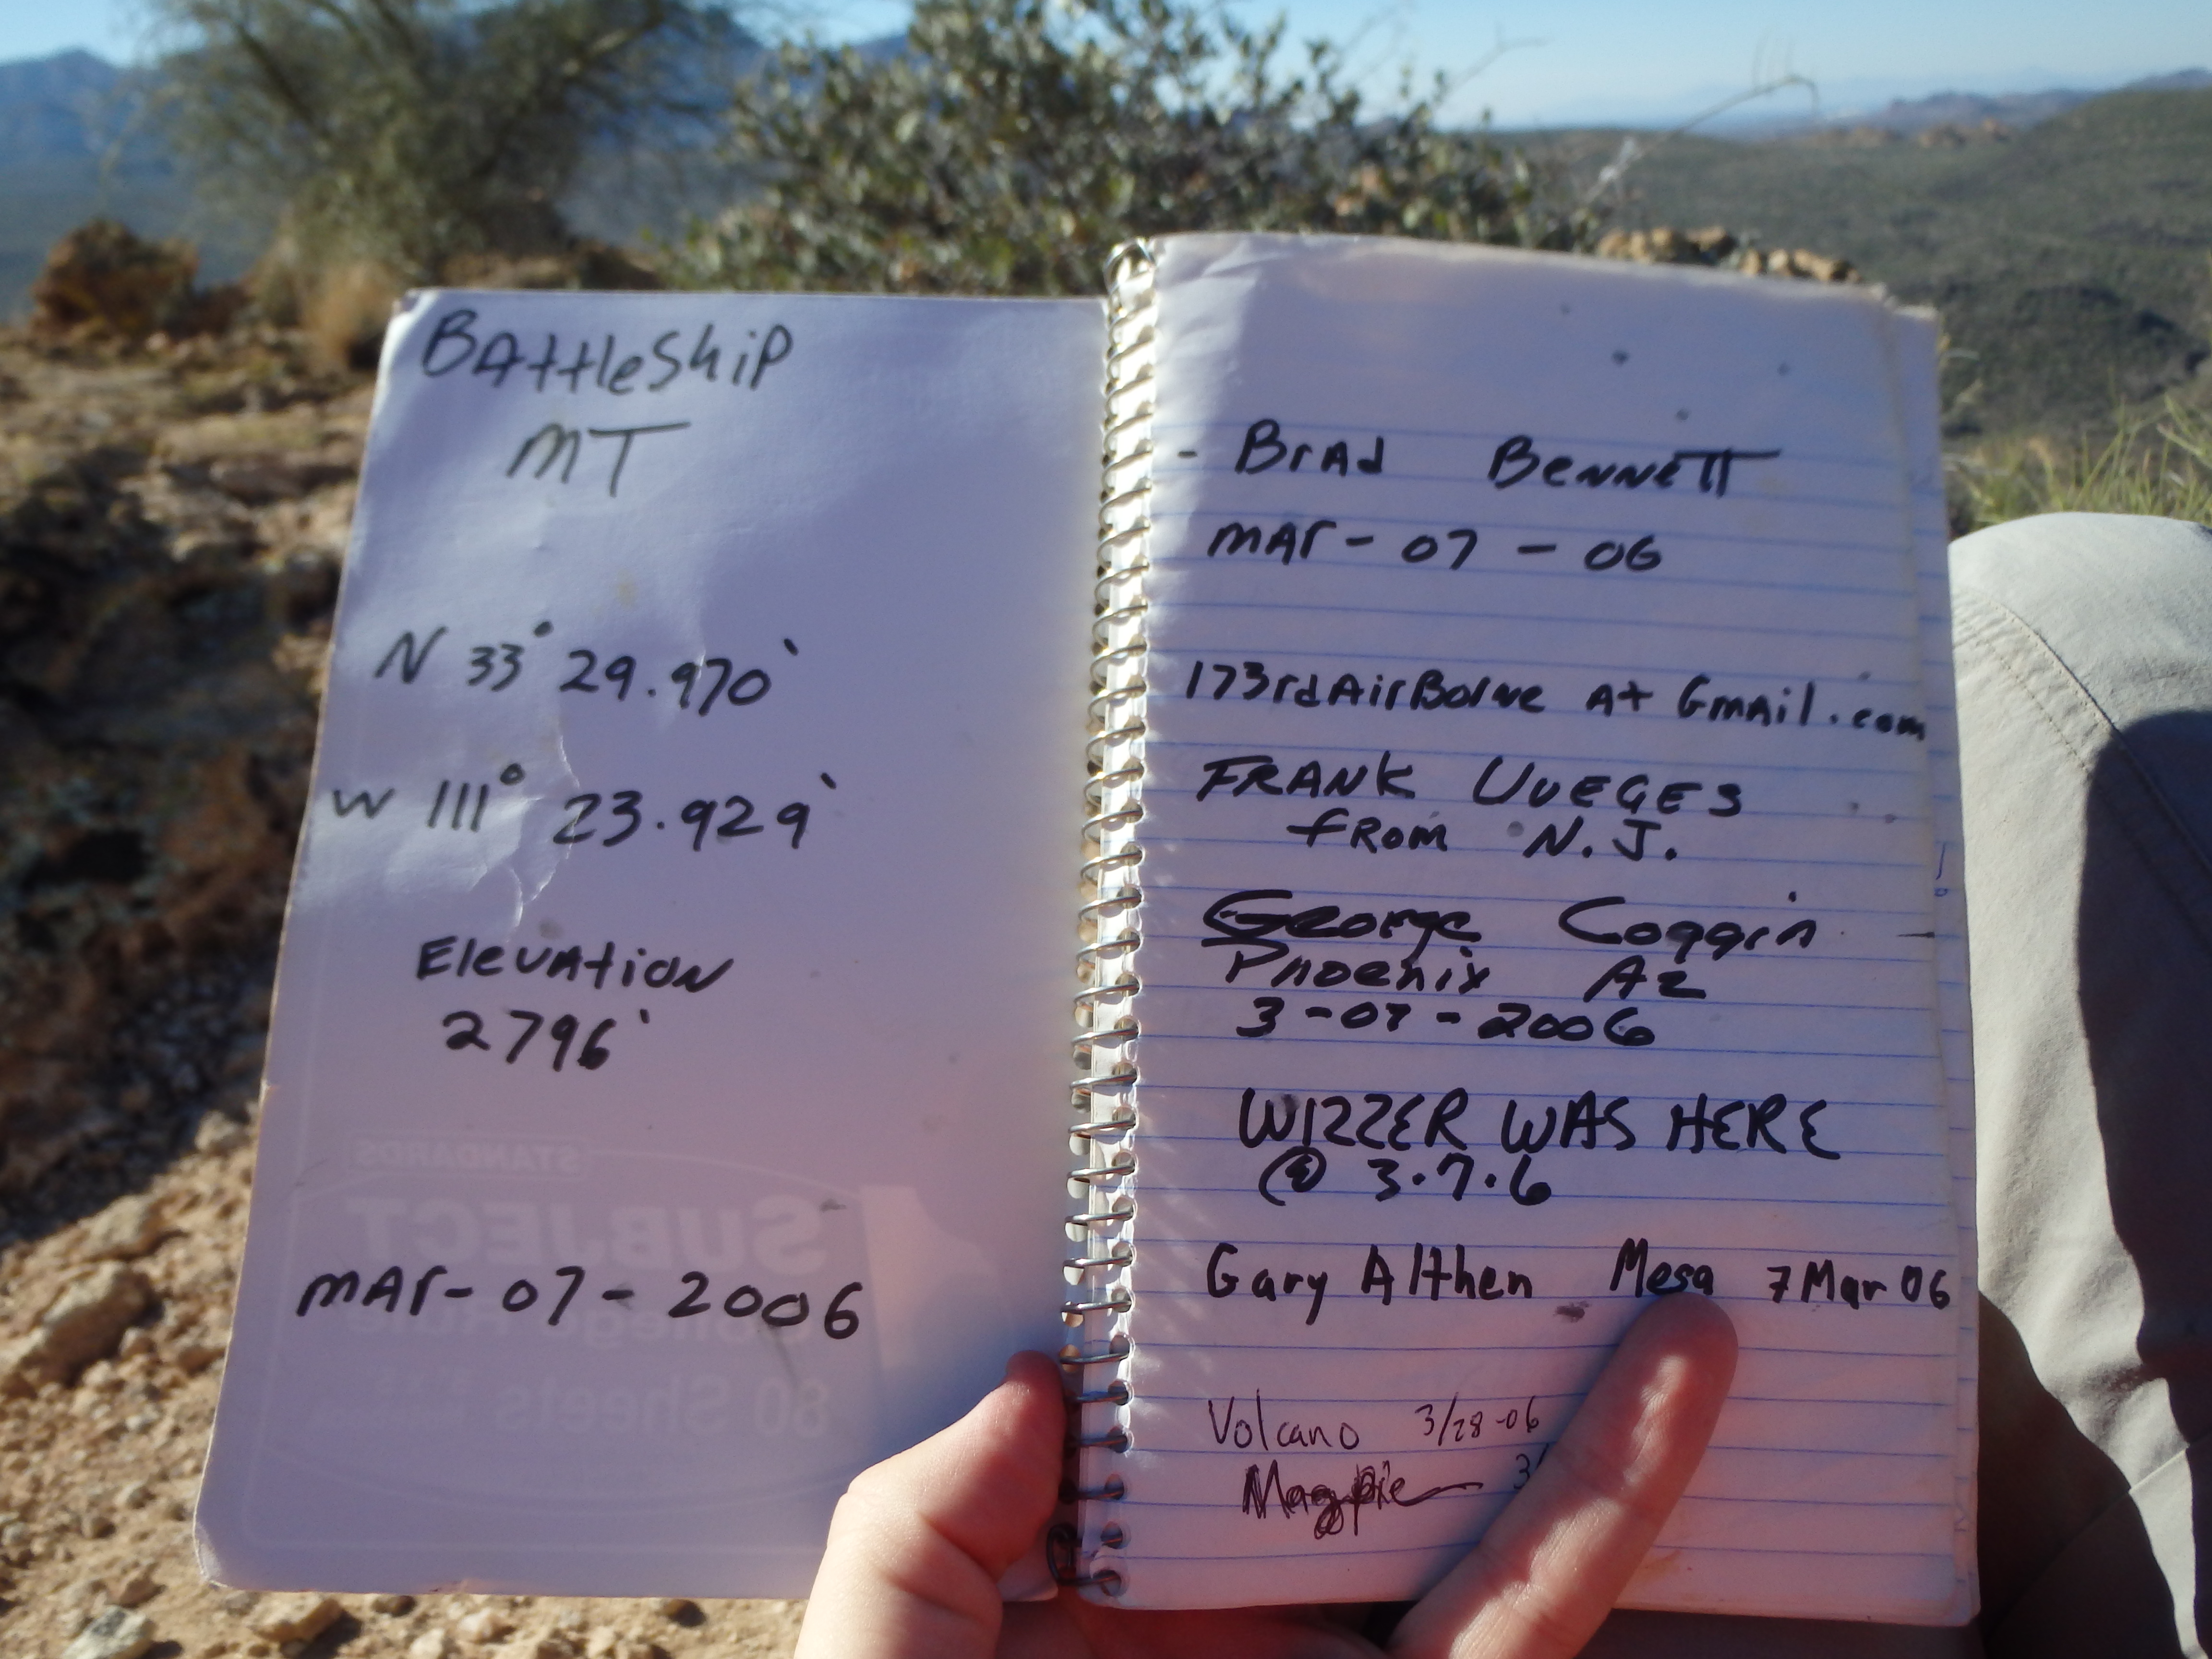 BAttleShip
MT
N 33° 29.970'
W 111° 23.929'
Elevation
2796'
MAr-07-2006
STANDARDS
1 SUBJECT
80 Sheets
- BrAd BenneTT
MAr-07-06
173rdAirBorne At Gmail.com
FRANK UUEGES
fROM N.J.
George Coggin
Phoenix Az
3-07-2006
WIZZER WAS HERE
@ 3.7.6
Gary Althen Mesa 7 Mar 06
Volcano 3/28-06
Magpie 3/